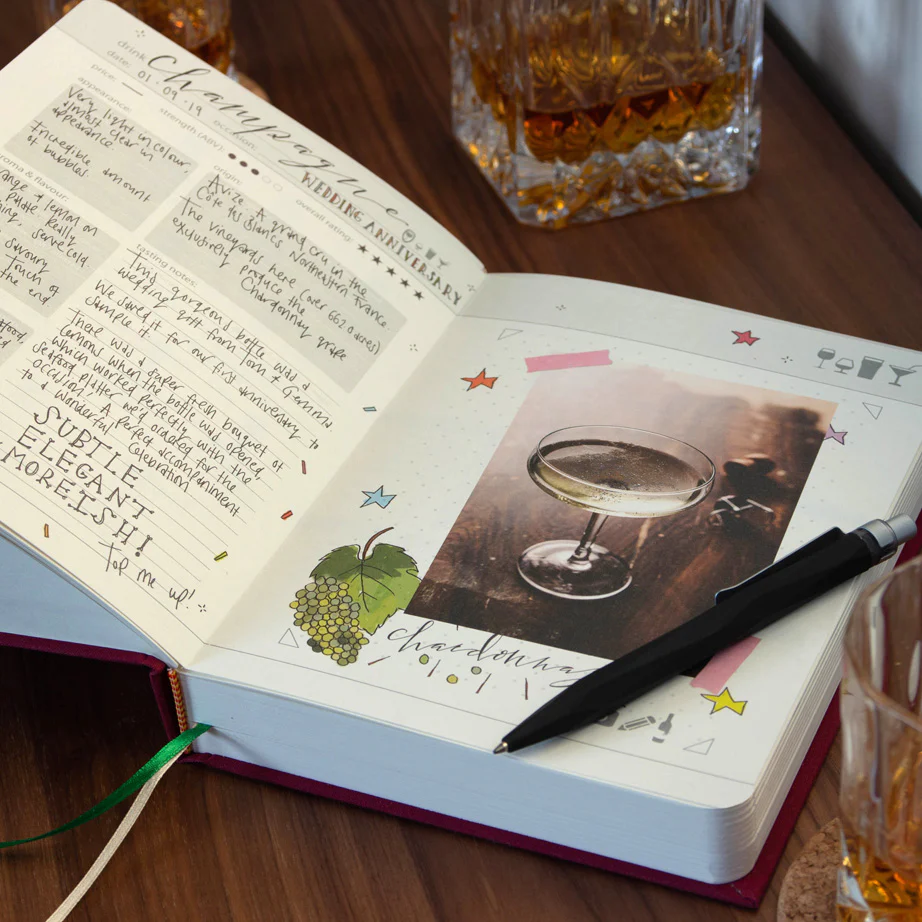 drink:
Champagne
date: 01.09.19
occasion:
WEDDING ANNIVERSARY
price: —
strength (ABV):
overall rating: ★★★★★
appearance:
Very light in colour,
almost clear in
appearance
Incredible amount
of bubbles.
origin:
Avize: A grand cru in the
Côte des Blancs Northeastern France.
The vineyards here (over 660 acres)
exclusively produce the
Chardonnay grape
aroma & flavour:
& lemon on
palate really
serve cold
savoury
touch of
the end
food,
tasting notes:
This gorgeous bottle was a
wedding gift from Tom & Gemma
We saved it for our first anniversary to
sample it.
There was a super fresh bouquet of
lemons when the bottle was opened,
which worked perfectly with the
seafood platter we'd ordered for the
occasion. A perfect accompaniment
to a wonderful celebration
SUBTLE
ELEGANT
MOREISH!
Top me up!
chardonnay